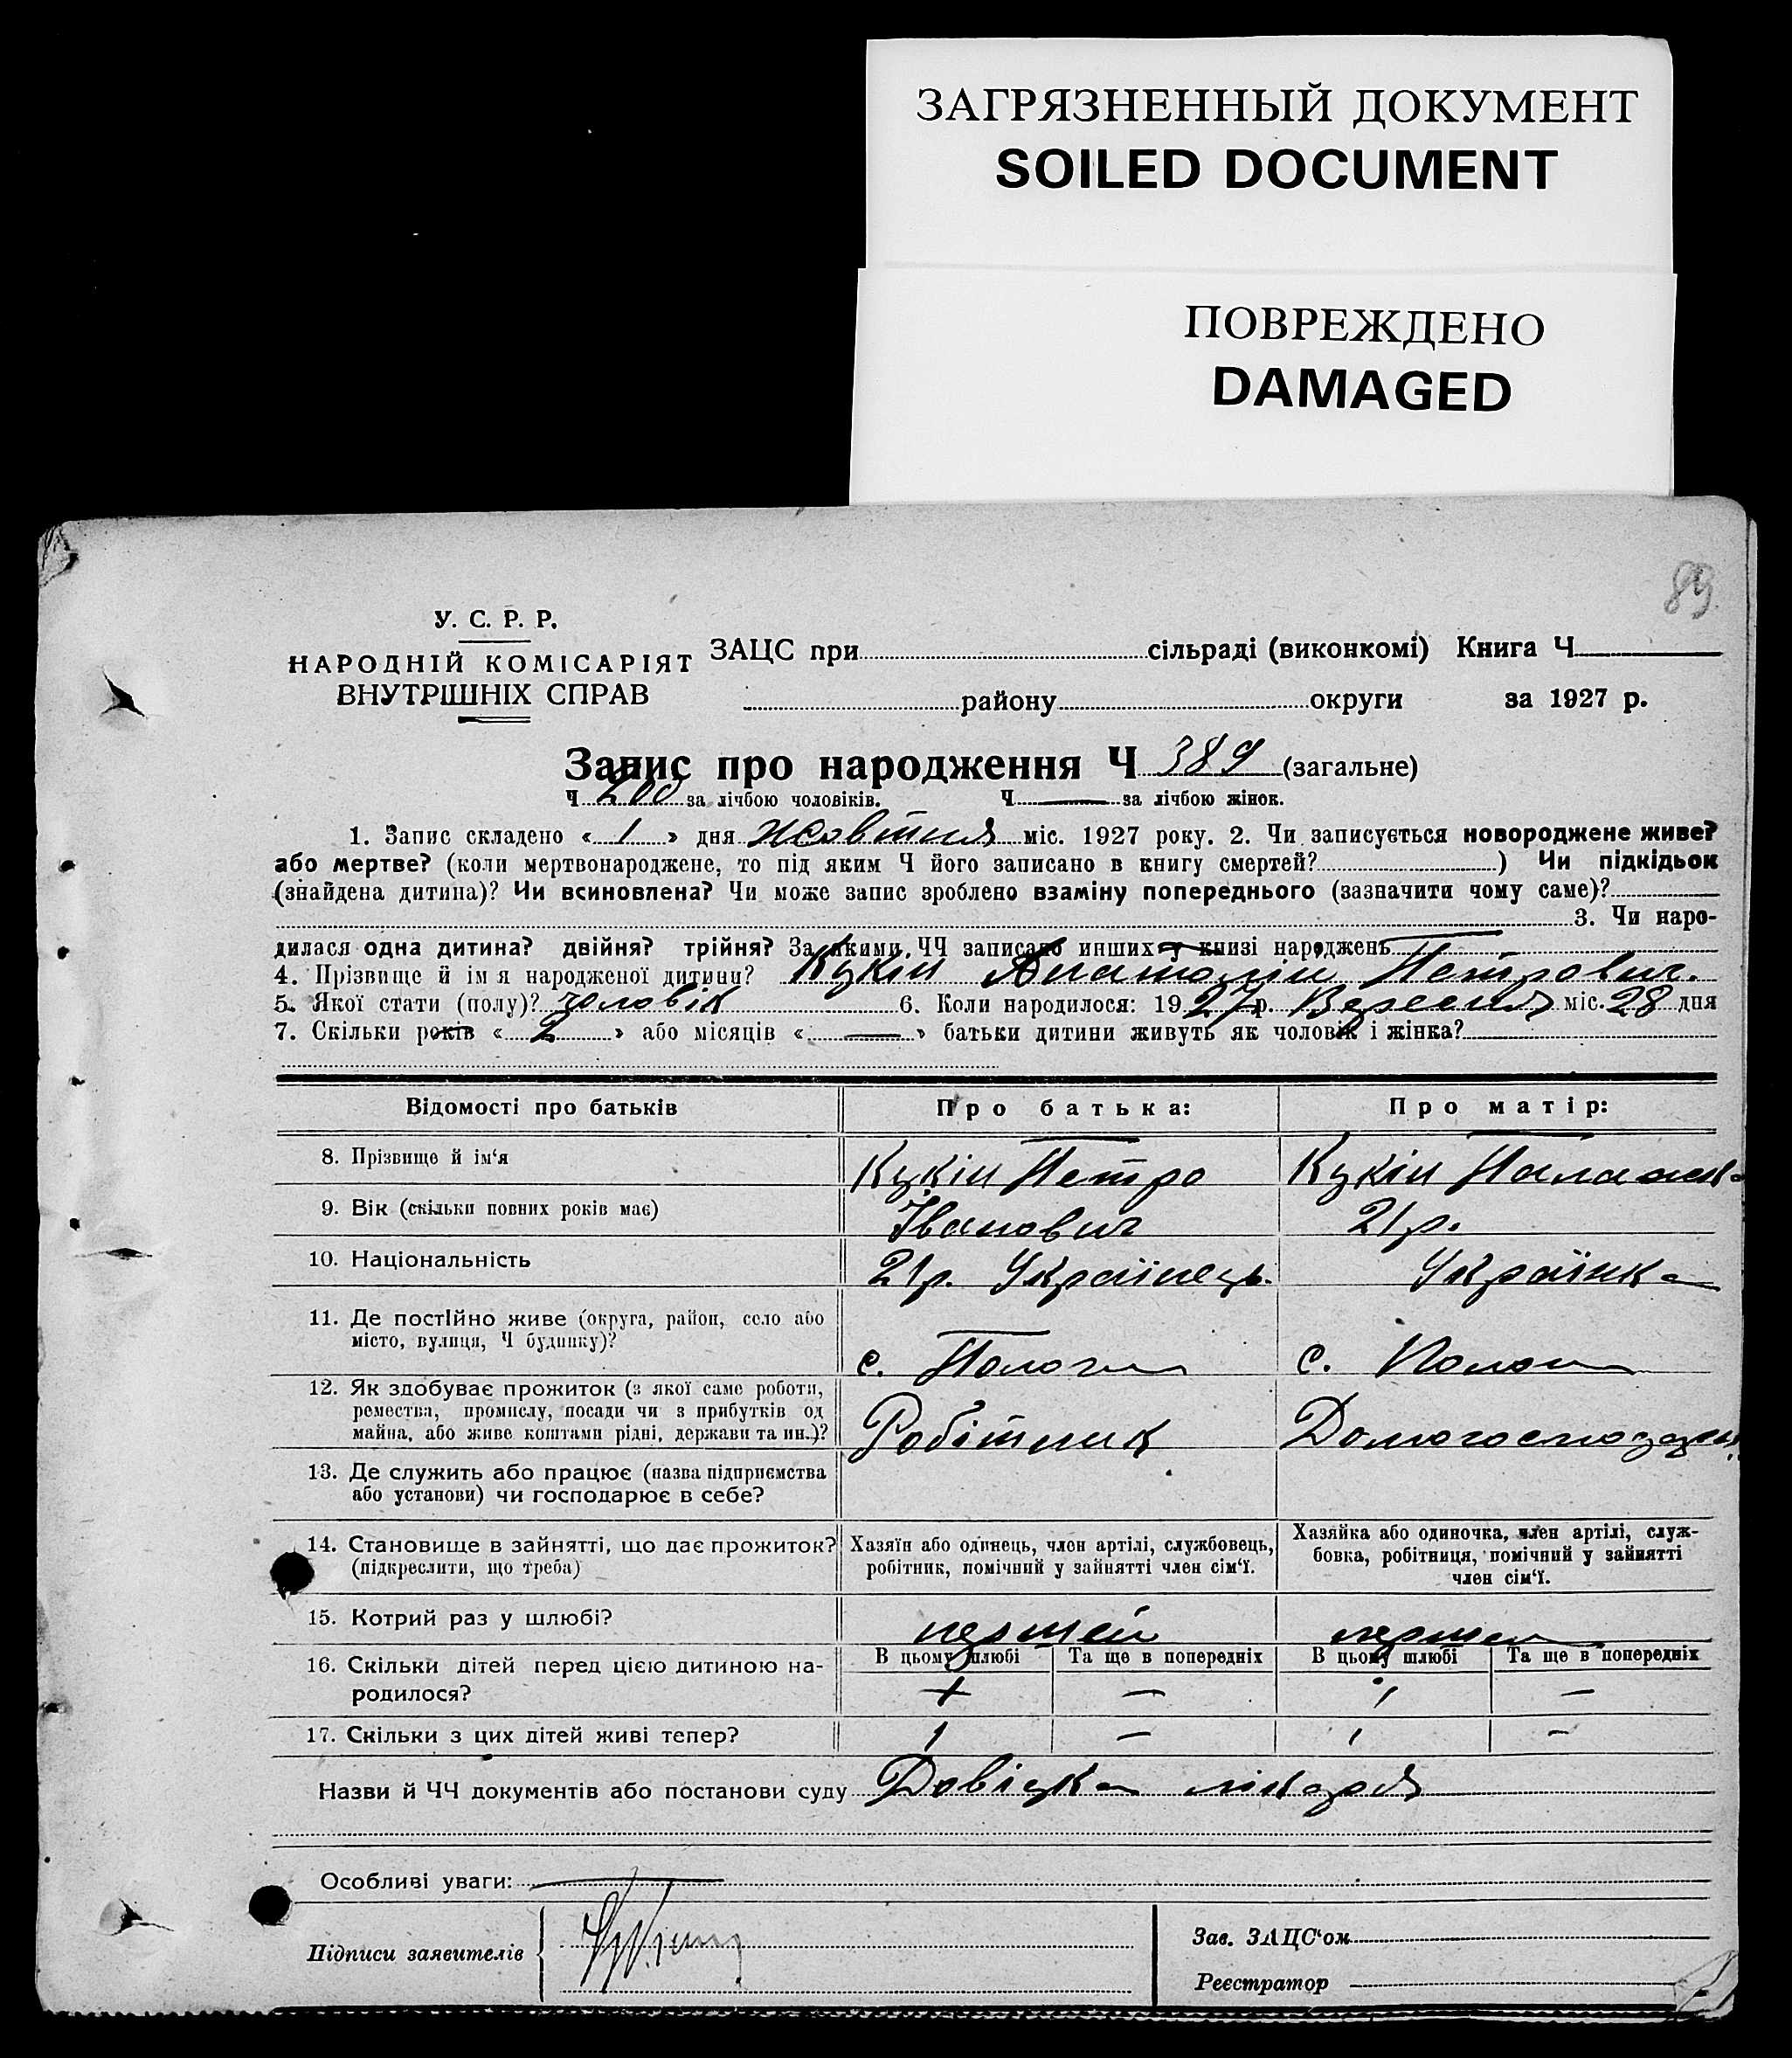 ЗАГРЯЗНЕННЫЙ ДОКУМЕНТ
SOILED DOCUMENT
ПОВРЕЖДЕНО
DAMAGED
89
У. С. Р. Р.
НАРОДНІЙ КОМІСАРІЯТ
ВНУТРІШНІХ СПРАВ
ЗАЦС при сільраді (виконкомі) Книга Ч
району округи за 1927 р.
Запис про народження Ч 389 (загальне)
Ч 200 за лічбою чоловіків. Ч — за лічбою жінок.
1. Запис складено « 1 » дня Жовтня міс. 1927 року. 2. Чи записується новороджене живе?
або мертве? (коли мертвонароджене, то під яким Ч його записано в книгу смертей? ) Чи підкідьок
(знайдена дитина)? Чи всиновлена? Чи може запис зроблено взаміну попереднього (зазначити чому саме)?
3. Чи наро-
дилася одна дитина? двійня? трійня? За якими ЧЧ записано инших у книзі народжень
4. Прізвище й ім я народженої дитини? Кукін Анатолін Петрович.
5. Якої стати (полу)? чоловік 6. Коли народилося: 1927 р. Вересня міс. 28 дня
7. Скільки років « 2 » або місяців « — » батьки дитини живуть як чоловік і жінка?
Відомості про батьків Про батька: Про матір:
8. Прізвище й ім‘я Кукін Петро Кукін
9. Вік (скільки повних років має) Іванович 21р.
10. Національність 21р. Українець. Українка
11. Де постійно живе (округа, район, село або
місто, вулиця, Ч будинку)? с. Пологи с. Пологи
12. Як здобуває прожиток (з якої саме роботи,
ремества, промислу, посади чи з прибутків од
майна, або живе коштами рідні, держави та ин.)? Робітник
13. Де служить або працює (назва підприємства
або установи) чи господарює в себе?
14. Становище в зайнятті, що дає прожиток?
(підкреслити, що треба)
Хазяїн або одинець, член артілі, службовець,
робітник, помічний у зайнятті член сім‘ї.
Хазяйка або одиночка, член артілі, служ-
бовка, робітниця, помічний у зайнятті
член сім‘ї.
15. Котрий раз у шлюбі? першей першей
В цьому шлюбі Та ще в попередніх В цьому шлюбі Та ще в попередніх
16. Скільки дітей перед цією дитиною на-
родилося? — 1 —
17. Скільки з цих дітей живі тепер? 1 — 1 —
Назви й ЧЧ документів або постанови суду Довідка лікаря
Особливі уваги: —
Підписи заявителів
Зав. ЗАЦС‘ом
Реєстратор